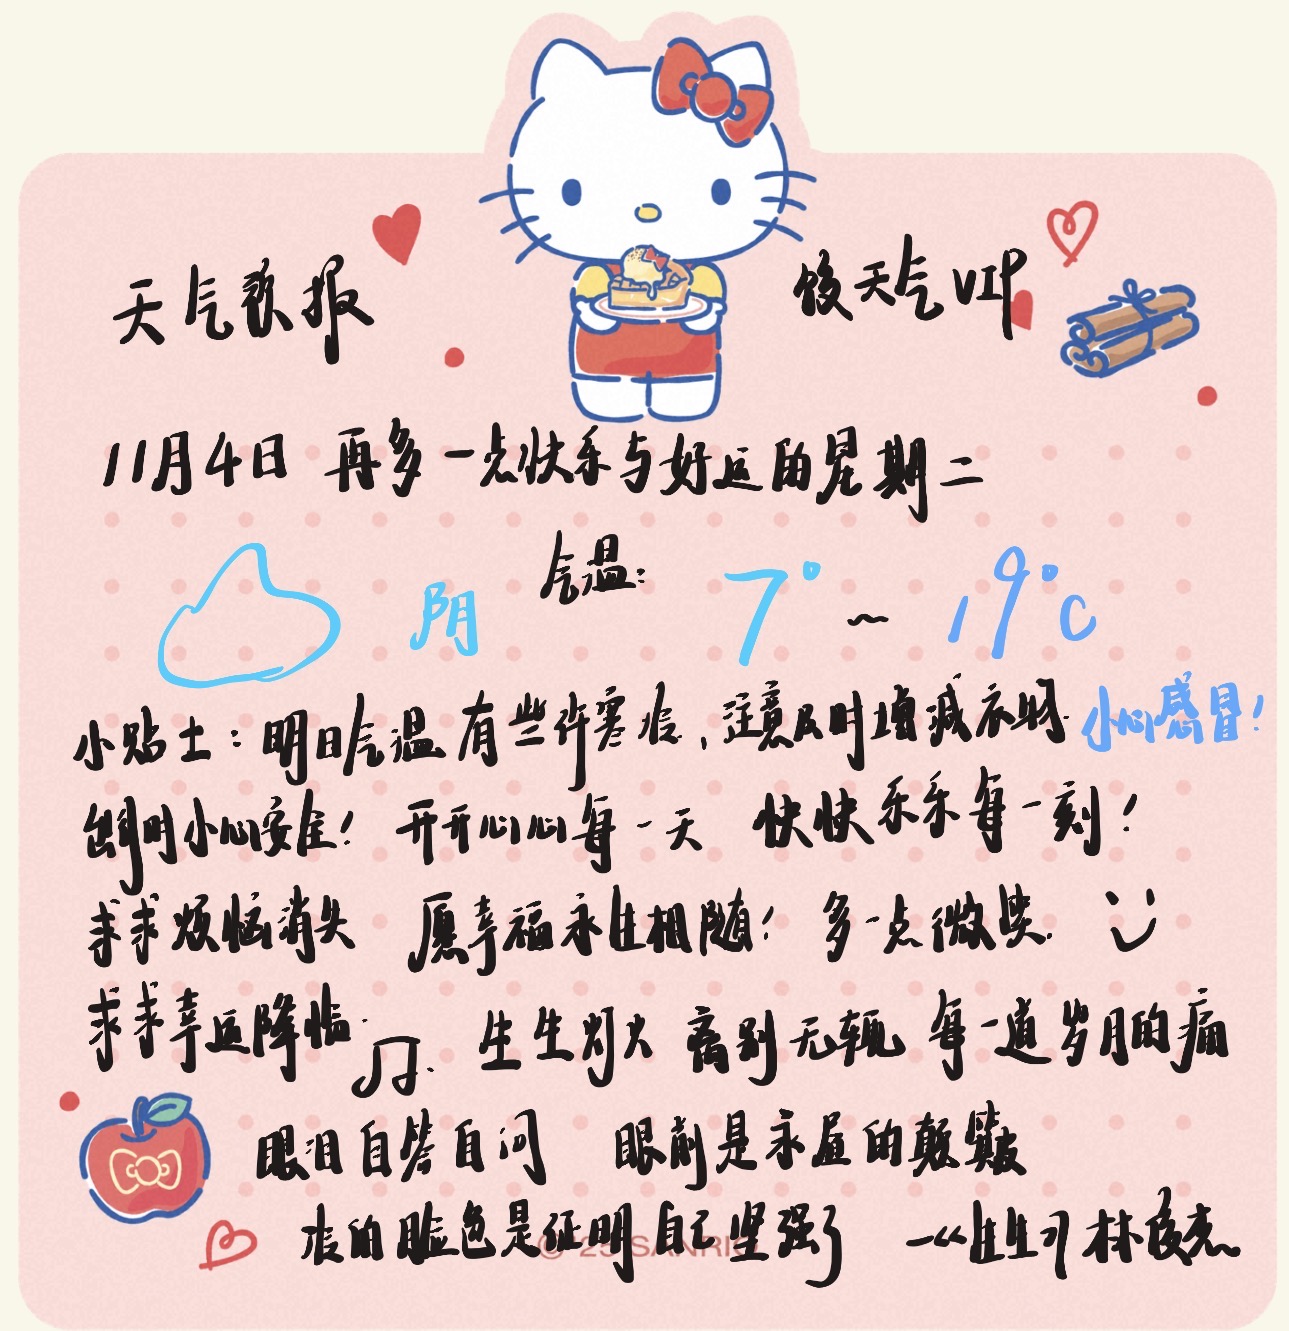 天气预报
俊天气VIP
11月4日 再多一点快乐与好运的星期二
气温:
阴 7°~19°C
小贴士:明日气温有些许寒凉,注意及时增减衣物 小心感冒!
出门小心安全! 开开心心每一天 快快乐乐每一刻!
求求烦恼消失 愿幸福永住相随! 多一点微笑
求求幸运降临 生生灯火 离别无辄 每一道岁月的痛
眼泪自答自问 眼前是永昼的颠簸
的脸色是证明自己坚强 —《生生》林俊杰
© '25 SANRIO